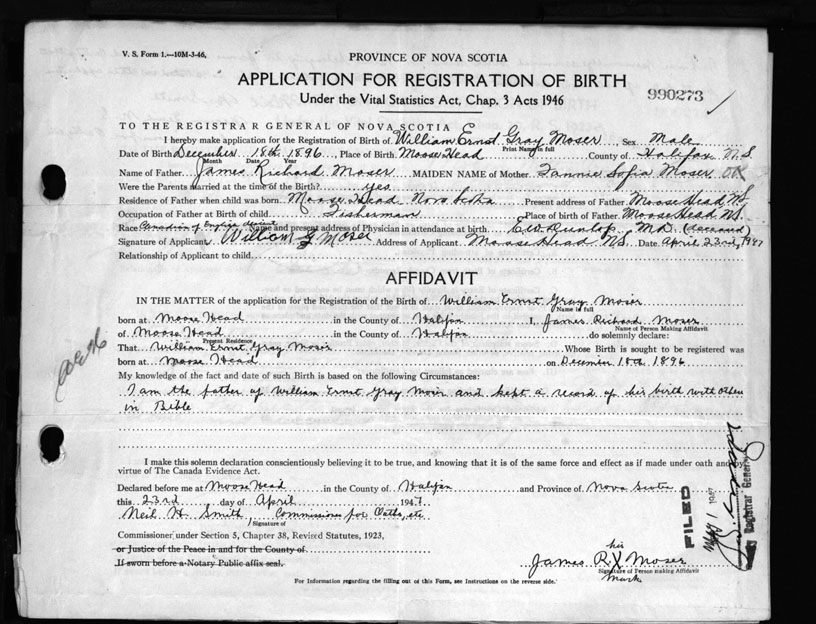 V. S. Form 1.—10M-3-46.
PROVINCE OF NOVA SCOTIA
APPLICATION FOR REGISTRATION OF BIRTH
Under the Vital Statistics Act, Chap. 3 Acts 1946
990273
TO THE REGISTRAR GENERAL OF NOVA SCOTIA
I hereby make application for the Registration of Birth of William Ernst Gray Moser Sex Male
Print Name in full
Date of Birth December 18th 1896 Place of Birth Moose Head County of Halifax N.S
Month Date Year
Name of Father James Richard Moser MAIDEN NAME of Mother Fannie Sofia Moser
Were the Parents married at the time of the Birth? yes
Residence of Father when child was born Moose Head Nova Scotia Present address of Father Moose Head N.S
Occupation of Father at Birth of child Fisherman Place of birth of Father Moose Head N.S.
Race Canadian of English descent Name and present address of Physician in attendance at birth E.W. Dunlop M.D. (deceased)
Signature of Applicant William G Moser Address of Applicant Moose Head N.S. Date April 23rd, 1947
Relationship of Applicant to child
AFFIDAVIT
IN THE MATTER of the application for the Registration of the Birth of William Ernst Gray Moser
Name in full
born at Moose Head in the County of Halifax I, James Richard Moser
Name of Person Making Affidavit
of Moose Head in the County of Halifax do solemnly declare:
Present Residence
That William Ernst Gray Moser Whose Birth is sought to be registered was
born at Moose Head on December 18th 1896
My knowledge of the fact and date of such Birth is based on the following Circumstances:
I am the father of William Ernst Gray Moser and kept a record of his birth with others
in Bible
I make this solemn declaration conscientiously believing it to be true, and knowing that it is of the same force and effect as if made under oath and by
virtue of The Canada Evidence Act.
Declared before me at Moose Head in the County of Halifax and Province of Nova Scotia
this 23rd day of April 1947
Neil H. Smith, Commissioner for Oaths, etc
Signature of
Commissioner under Section 5, Chapter 38, Revised Statutes, 1923,
or Justice of the Peace in and for the County of
If sworn before a Notary Public affix seal.
his
James R X Moser
Signature of Person making Affidavit
Mark
For Information regarding the filling out of this Form, see Instructions on the reverse side.
FILED
MAY 1 1947
Registrar General